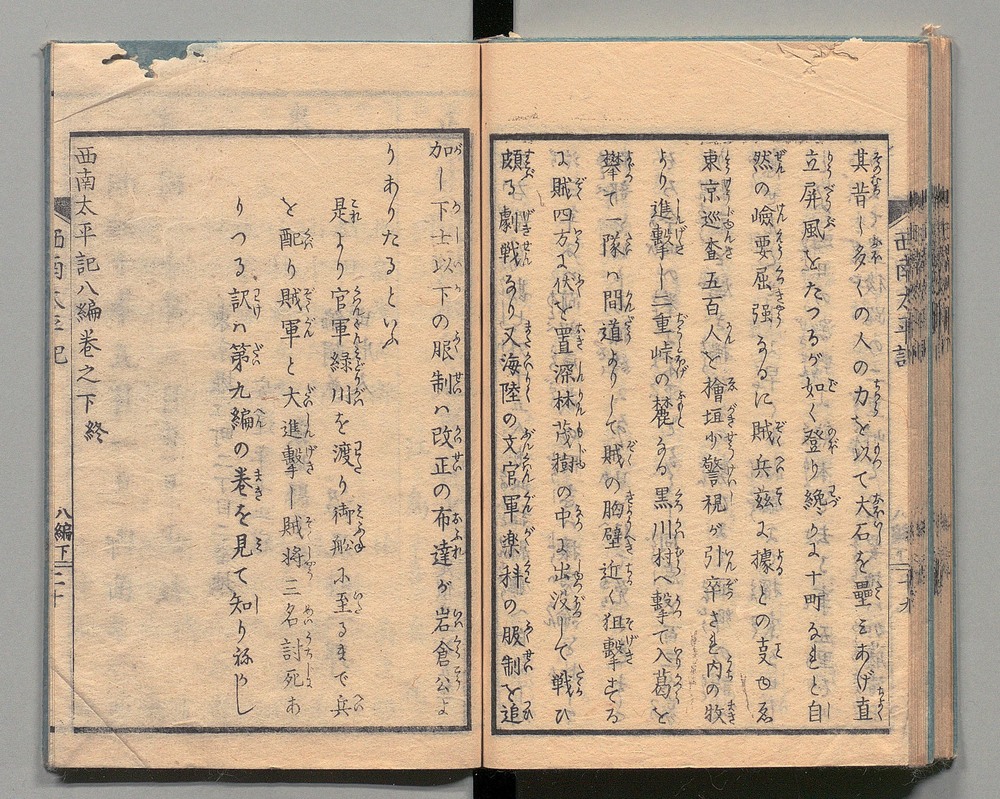 其昔し多くの人の力を以て大石を疊こあげ直
立屏風をたつるが如く登り纔かよ十町るれと自
然の嶮要屈强なるに賊兵茲よ據との㕝也ゑ
東京巡査五百人を檜垣少警視が引卒され内の牧
より進擊し二重峠の麓なる黒川村へ擊て入葛を
攀て一隊ハ間道よりして賊の胸壁近く狙擊するよ
よ賊四方よ伏を置深林茂樹の中より出没して戦ひ
頗る劇戦なり又海陸の文官軍楽科の服制を追
加し下士以下の服制ハ改正の布達が岩倉公よ
りありたるといふ
是より官軍緑川を渡り御舩に至るまで兵
を配り賊軍と大進擊し賊将三名討死あ
りつる訳ハ第九編の巻を見て知り祢かし
西南太平記八編巻之下終
西南太平記
八編下
二十
西南太平記